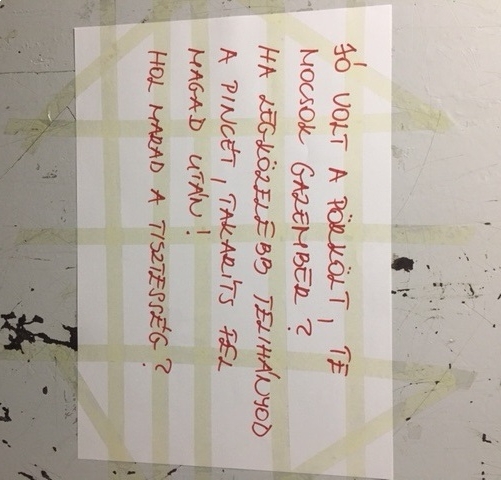 JÓ VOLT A PÖRKÖLT, TE
MOCSOK GAZEMBER?
HA LEGKÖZELEBB TELIHÁNYOD
A PINCÉT, TAKARÍTS FEL
MAGAD UTÁN!
HOL MARAD A TISZTESSÉG?